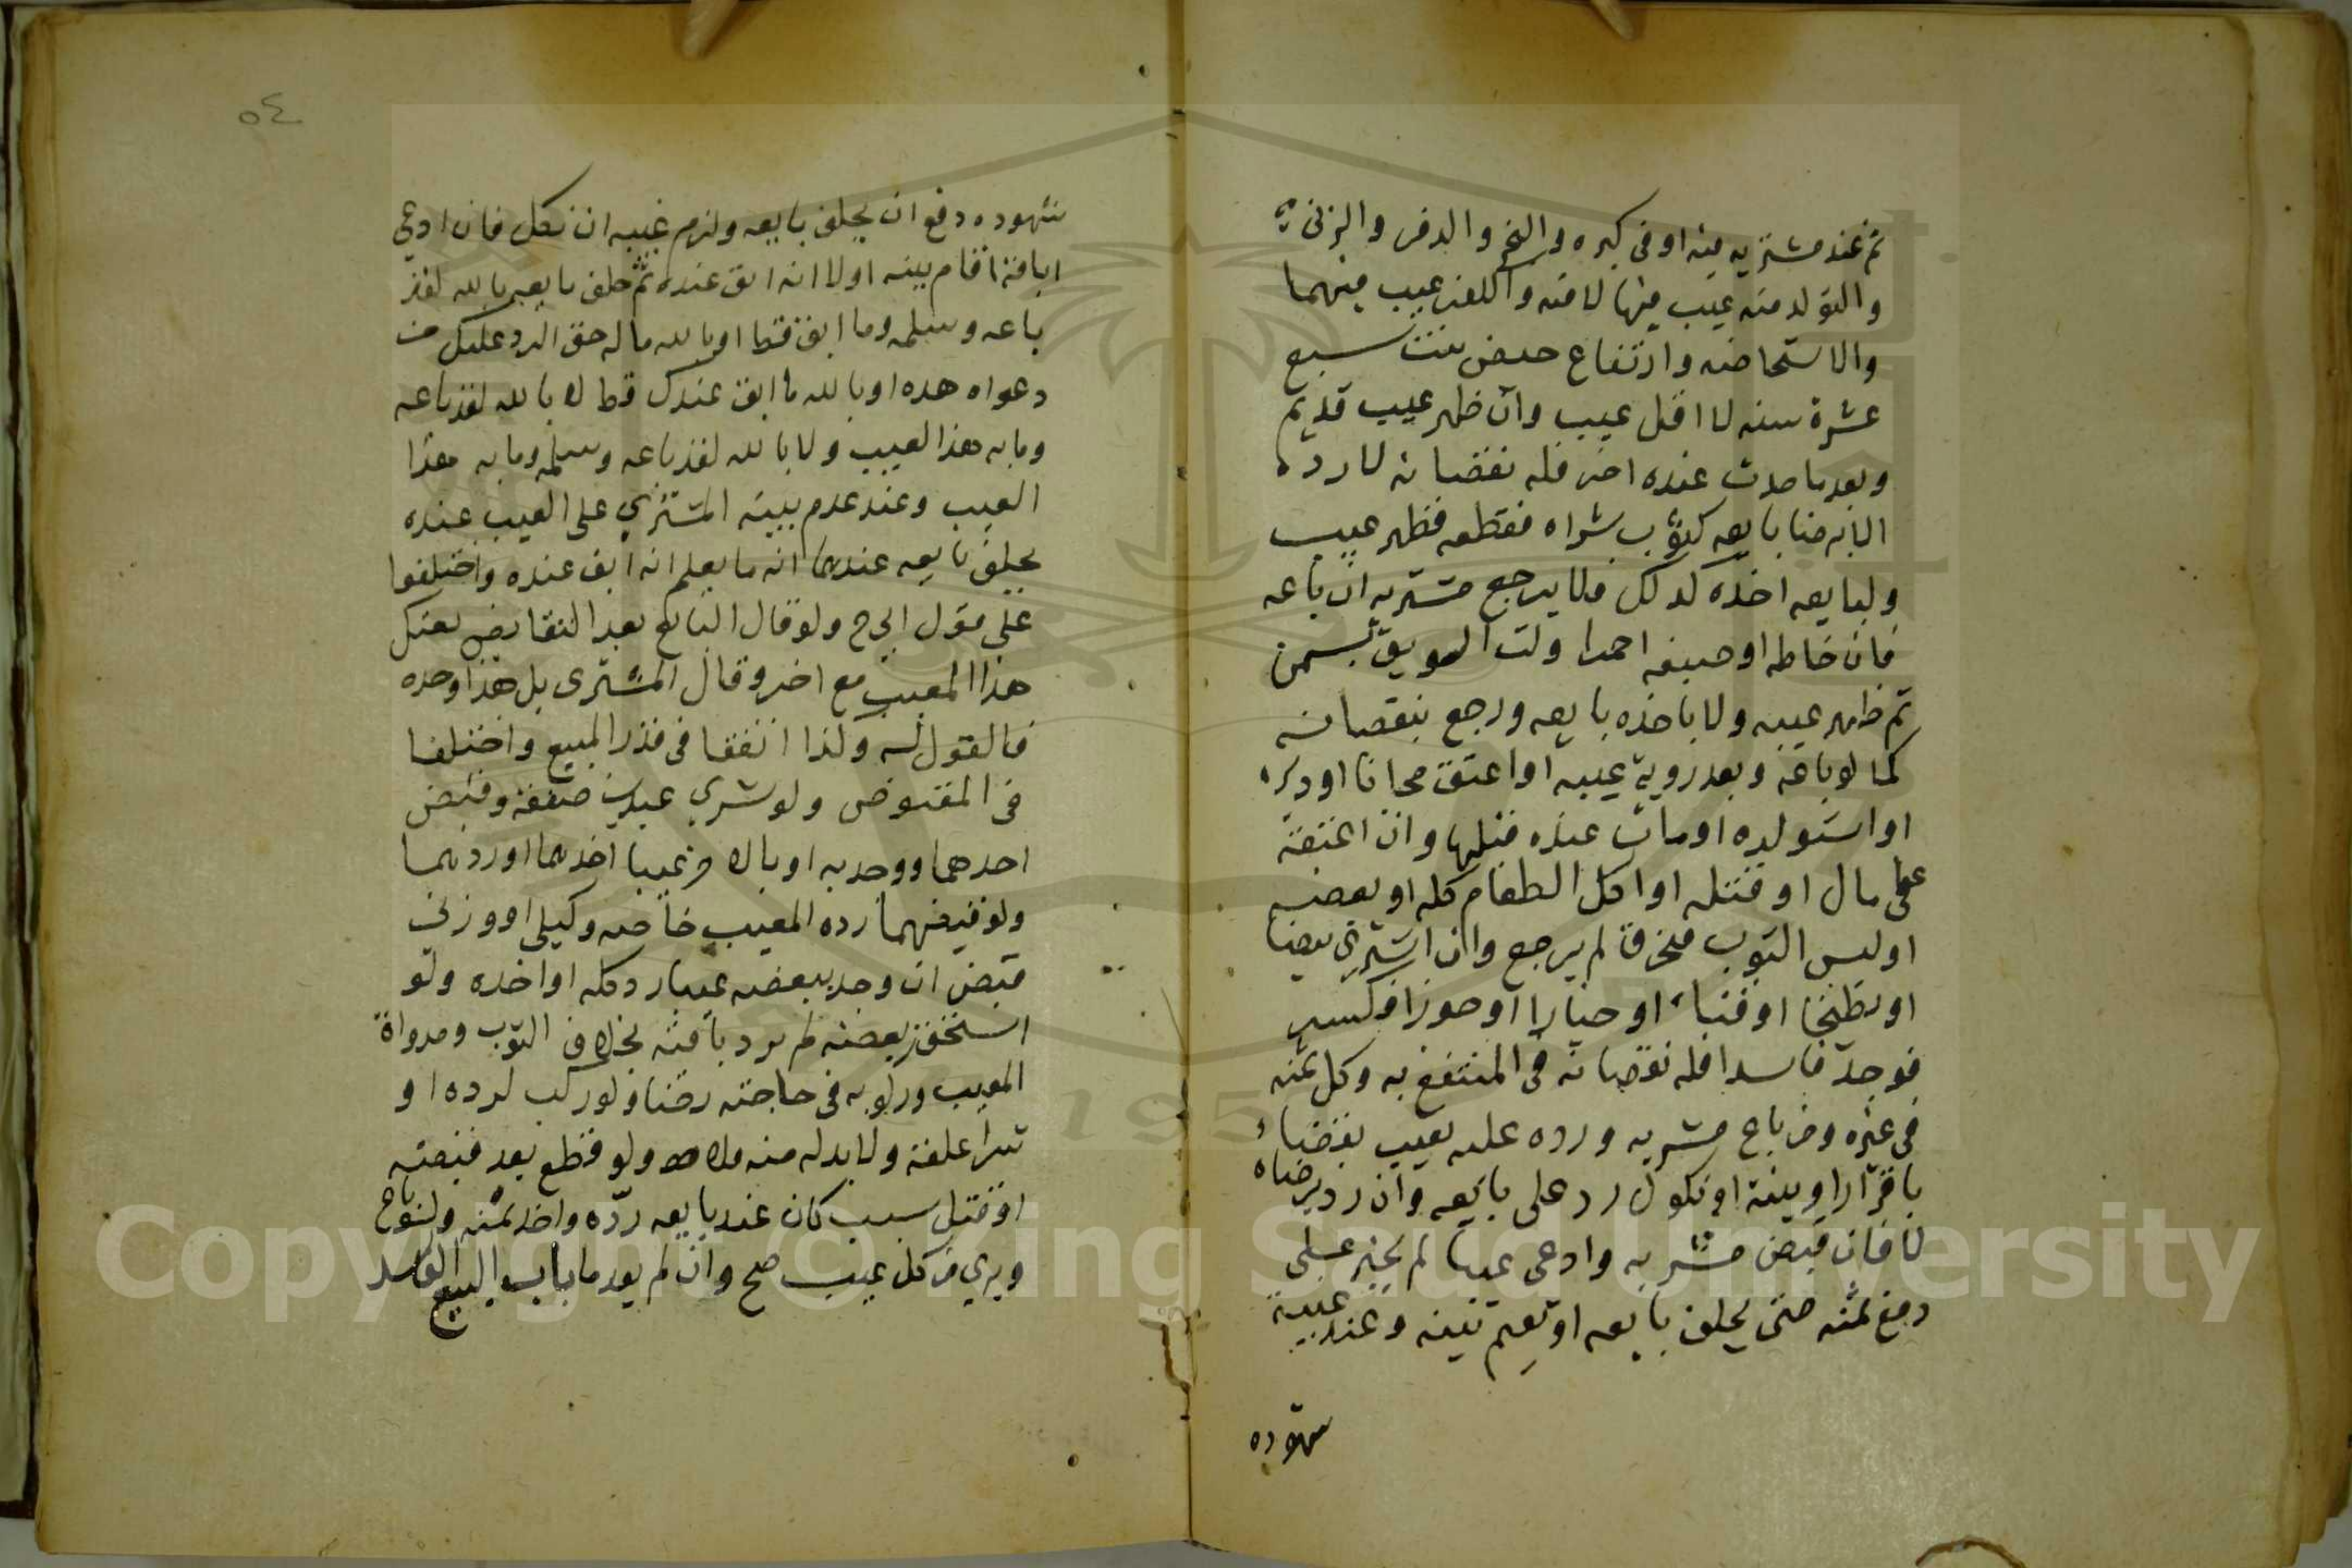 ثم عند مشتريه منه او فى كبره والبخر والدفر والزنى
والتولد منه عيب فيها لا فيه والكفر عيب فيهما
والاستحاضه وارتفاع حيض بنت سبع
عشرة سنه لا اقل عيب وان ظهر عيب قديم
وبعد ما حدث عنده اخر فله نقصانه لا رده
الا برضا بايعه كثوب شراه فقطعه فظهر عيب
ولبايعه اخذه لذلك فلا يرجع مشتريه ان باعه
فان خاطه او صبغه احمرا ولت السويق بسمن
ثم ظهر عيبه ولا ياخذه بايعه ورجع بنقصانه
كما لو باعه وبعد روية عيبه او اعتق مجانا او دبره
او استولده او مات عنده قبلها وان اعتقه
على مال او قتله او اكل الطعام كله او بعضه
او لبس الثوب فتخرق لم يرجع وان اشترى بيضا
او بطيخا او قثاء او خيارا او جوزا فكسر
فوجد فاسدا فله نقصانه فى المنتفع به وكل ثمنه
فى غيره ومن باع مشريه ورده عليه بعيب بقضاء
باقرار او بينة او نكول رد على بايعه وان رد برضاه
لا فان قبض مشريه وادعى عيبا لم يجبر على
دفع ثمنه حتى يحلف بايعه او يقيم بينه وعند غيبة
شهوده
٥٤
شهوده دفع ان يحلف بايعه ولزم عيبه ان نكل فان ادعى
اباقة اقام بينه اولا انه ابق عنده ثم حلف بايعه بالله لقد
باعه وسلمه وما ابق قط او بالله ما له حق الرد عليك من
دعواه هذه او بالله ما ابق عندك قط لا بالله لقد باعه
وما به هذا العيب ولا بالله لقد باعه وسلمه وما به هذا
العيب وعند عدم بينة المشتري على العيب عنده
يحلف بايعه عندهما انه ما يعلم انه ابق عنده واختلفوا
على قول ابي ح ولو قال البايع بعد التقابض بعتك
هذا المعيب مع اخر وقال المشترى بل هذا وحده
فالقول له ولذا اتفقا فى قدر المبيع واختلفا
فى المقبوض ولو شري عبدين صفقة وقبض
احدهما ووجد به او بالاخر عيبا اخذهما او ردهما
ولو قبضهما رده المعيب خاصه وكيلي او وزني
قبض ان وجد ببعضه عيبا رد كله او اخذه ولو
استحق بعضه لم يرد باقيه بخلاف الثوب ومدواة
المعيب وركوبه فى حاجته رضا ولو ركب لرده او
شرا علفه ولا بد له منه فلا ولو قطع بعد قبضه
او قتل بسبب كان عند بايعه رده واخذ ثمنه ولو باع
وبري من كل عيب صح وان لم يعدها باب البيع الفاسد
Copyright © King Saud University
195